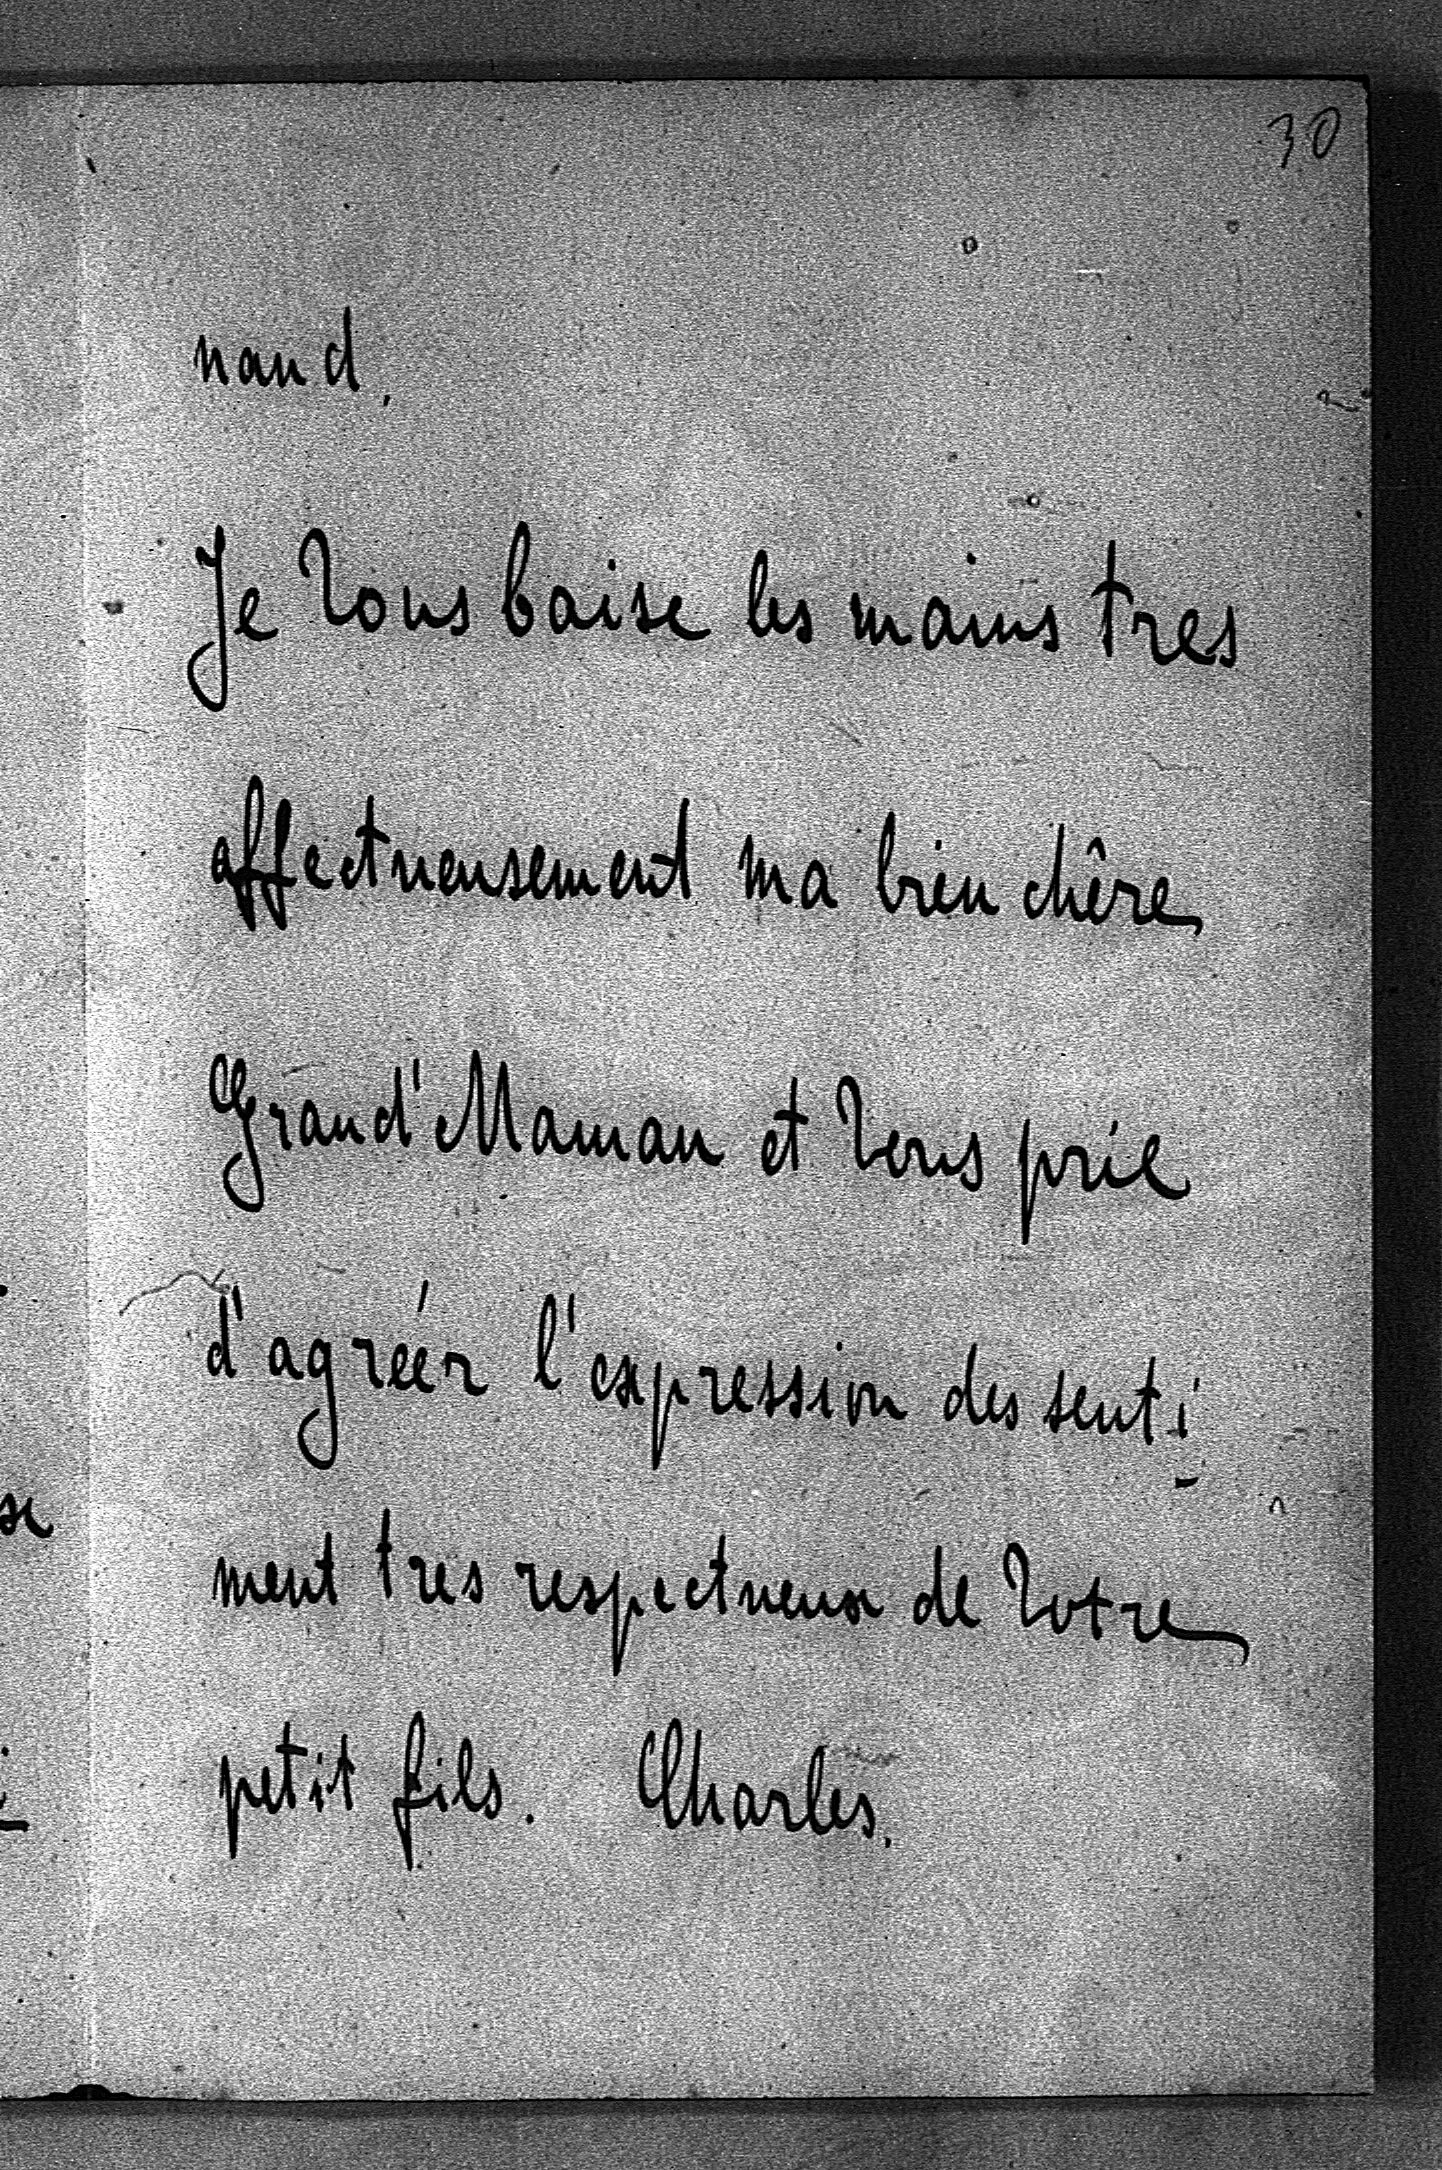 30
nand.
Je Vous baise les mains tres
affectueusement ma bien chêre
Grand'Maman et Vous prie
d'agréer l'expression des senti-
ment tres respectueux de Votre
petit fils. Charles.